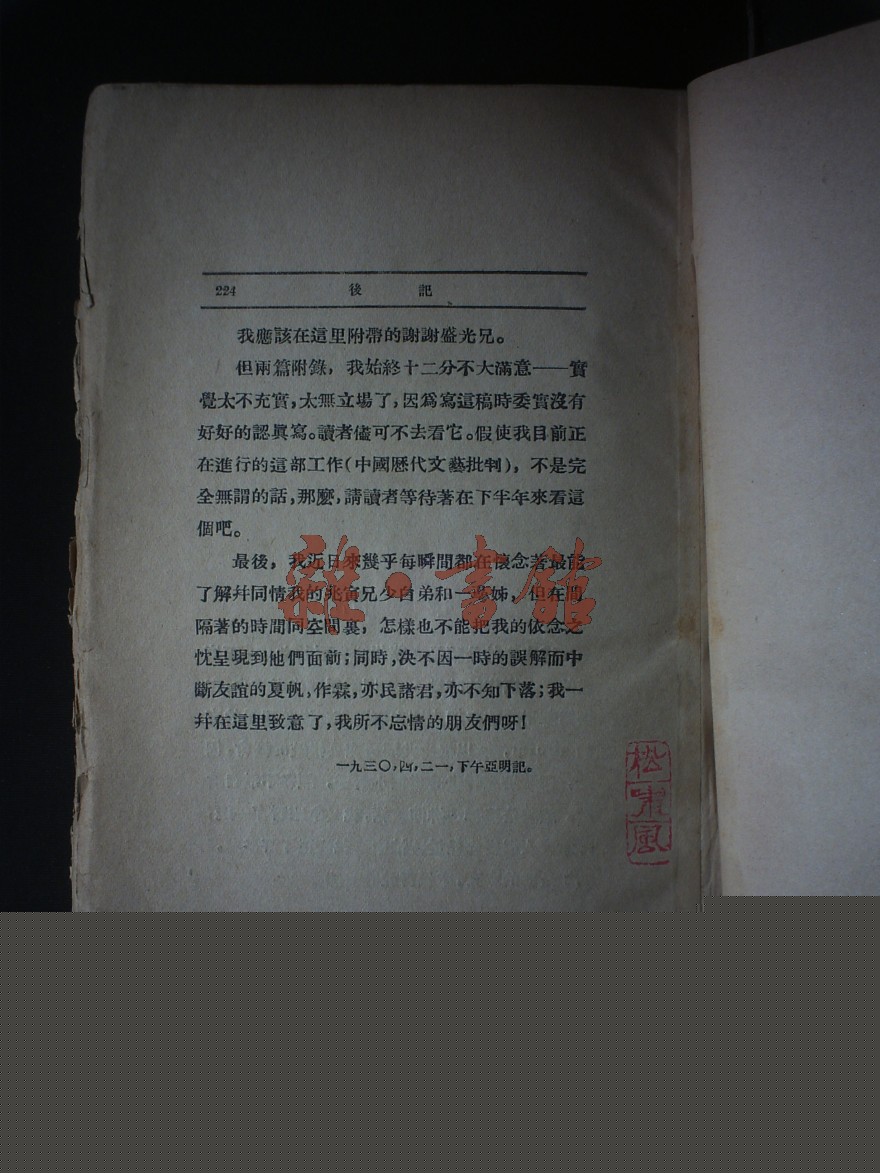 224 後 記
我應該在這里附帶的謝謝盛光兄。
但兩篇附錄，我始終十二分不大滿意——實
覺太不充實，太無立場了，因爲寫這稿時委實沒有
好好的認眞寫。讀者儘可不去看它。假使我目前正
在進行的這部工作(中國歷代文藝批判)，不是完
全無謂的話，那麽，請讀者等待著在下半年來看這
個吧。
最後，我近日來幾乎每瞬間都在懷念著最能
了解幷同情我的兆寅兄少自弟和一姊，但在間
隔著的時間同空間裏，怎樣也不能把我的依念之
忱呈現到他們面前；同時，決不因一時的誤解而中
斷友誼的夏帆、作霖，亦民諸君，亦不知下落；我一
幷在這里致意了，我所不忘情的朋友們呀！
一九三〇，四，二一，下午亞明記。
雜·書館
松
嘯
風